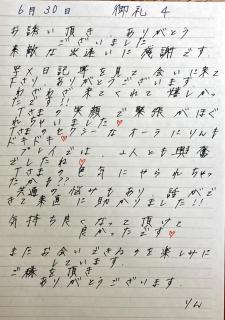 6月30日 御礼 4
お誘い頂き ありがとう
ございました
素敵な出逢いに感謝です
写メ日記等を見て会いに来て
下さり ありがとうございます
来てくれて 嬉しかっ
たです!!
Tさまの笑顔で緊張がほぐ
れちゃいました♡
Tさまのセクシーなオーラにりんも
ドキドキ♡
プレイでは、2人とも興奮
でしたね♡
Tさまの色気にやられちゃっ
たかも??
共通の悩みもあり 話がで
きて素直に助かりました!!
気持ち良くなって頂けて
良かったです♡
またお会いできるのを楽しみに
しています
ご縁を頂き
ありがとうございます
りん